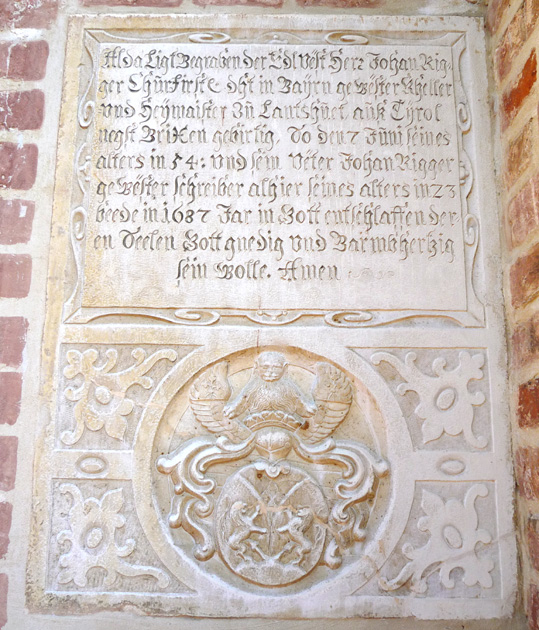 Alda Ligt Begraben der Edl Vest Herr Johan Rig-
ger Churfirstl dht in Bayrn gewester Kheller
vnd Heÿmaister zu Lantshuet auß Tÿrol
negst Brixen gebirtig. To den 7 Juni seines
alters in 54: vnd sein Veter Johan Rigger
gewester schreiber alhier seines alters in 23
beede in 1687 Jar in Gott entschlaffen der
en Seelen Gott gnedig vnd Barmbhertzig
sein Wolle. Amen